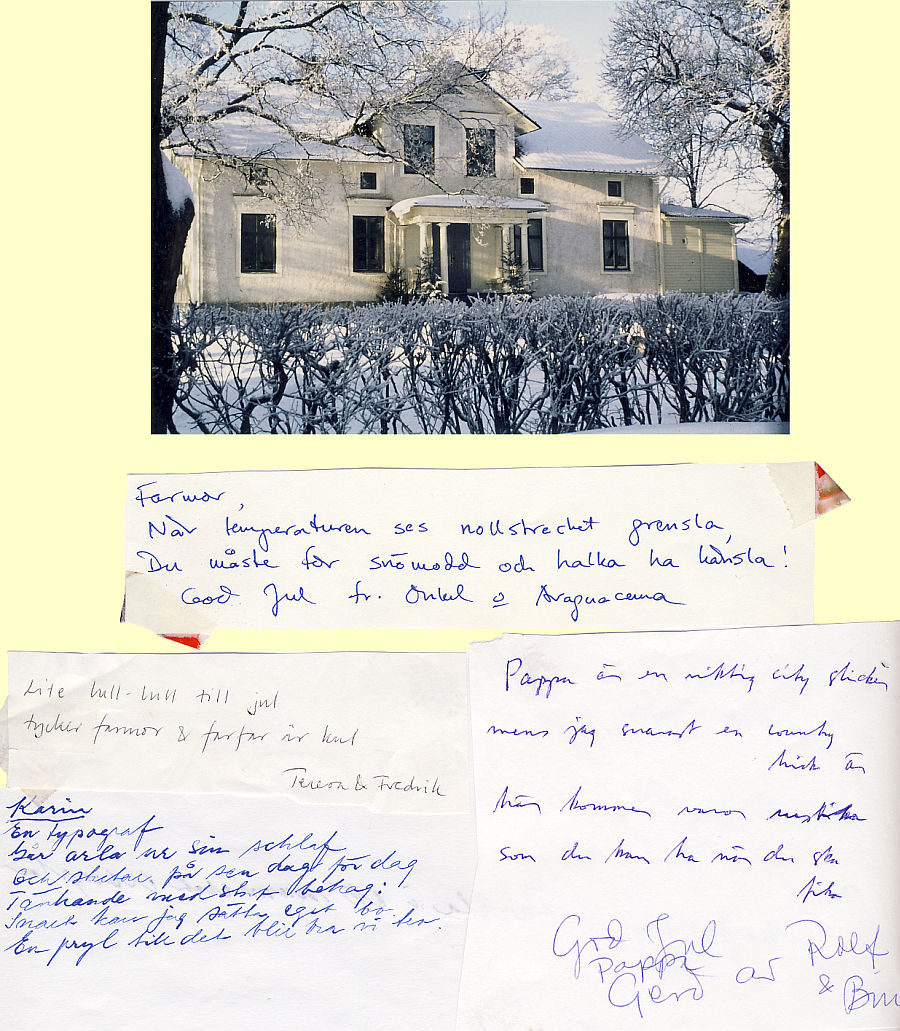 Farmor,
När temperaturen ses nollstrecket gränsla,
Du måste för snömodd och halka ha känsla!
God Jul fr. Onkel o
Lite lull-lull till jul
tycker farmor & farfar är kul
Teresa & Fredrik
Karin
En typograf
Går arla ur sin schlaf
och slutar på sen dag för dag
Tänkande med stort behag:
Snart kan jag sätta eget bo
En pryl till det blir bra vi tro.
Pappa är en riktig city slicker
mens jag snarast en country
hick är
här kommer varor rustika
som du kan ha när du ska
fika
God Jul
Pappa
Gerd av Rolf
&